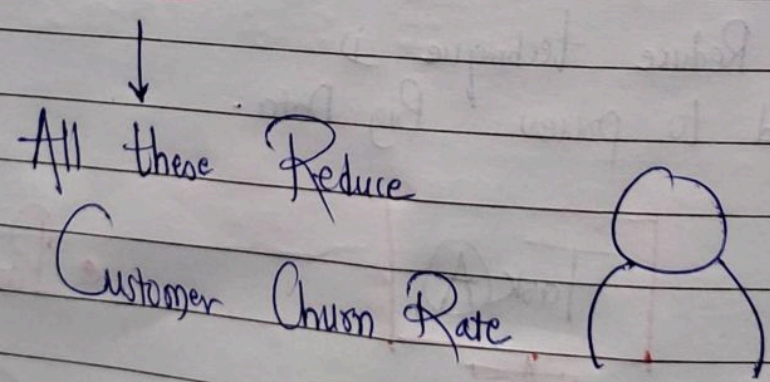 All these Reduce
Customer Churn Rate